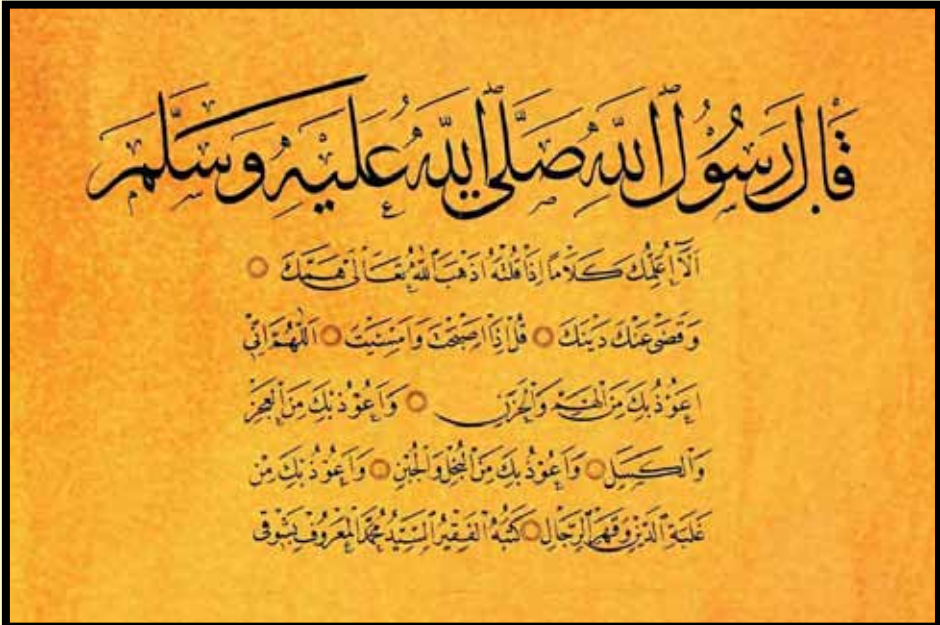 قَالَ رَسُوْلُ اللّٰهِ صَلَّى اللّٰهُ عَلَيْهِ وَسَلَّمَ
اَلَآ اُعَلِّمُكَ كَلَامًا اِذَا قُلْتَهُ اَذْهَبَ اللّٰهُ تَعَالٰى هَمَّكَ
وَقَضٰى عَنْكَ دَيْنَكَ قُلْ اِذَا اَصْبَحْتَ وَاَمْسَيْتَ اَللّٰهُمَّ اِنِّي
اَعُوْذُ بِكَ مِنَ الْهَمِّ وَالْحَزَنِ وَاَعُوْذُ بِكَ مِنَ الْعَجْزِ
وَالْكَسَلِ وَاَعُوْذُ بِكَ مِنَ الْبُخْلِ وَالْجُبْنِ وَاَعُوْذُ بِكَ مِنْ
غَلَبَةِ الدَّيْنِ وَقَهْرِ الرِّجَالِ كَتَبَهُ الْفَقِيْرُ السَّيِّدُ مُحَمَّدُ الْمَعْرُوْفُ بِشَوْقِي